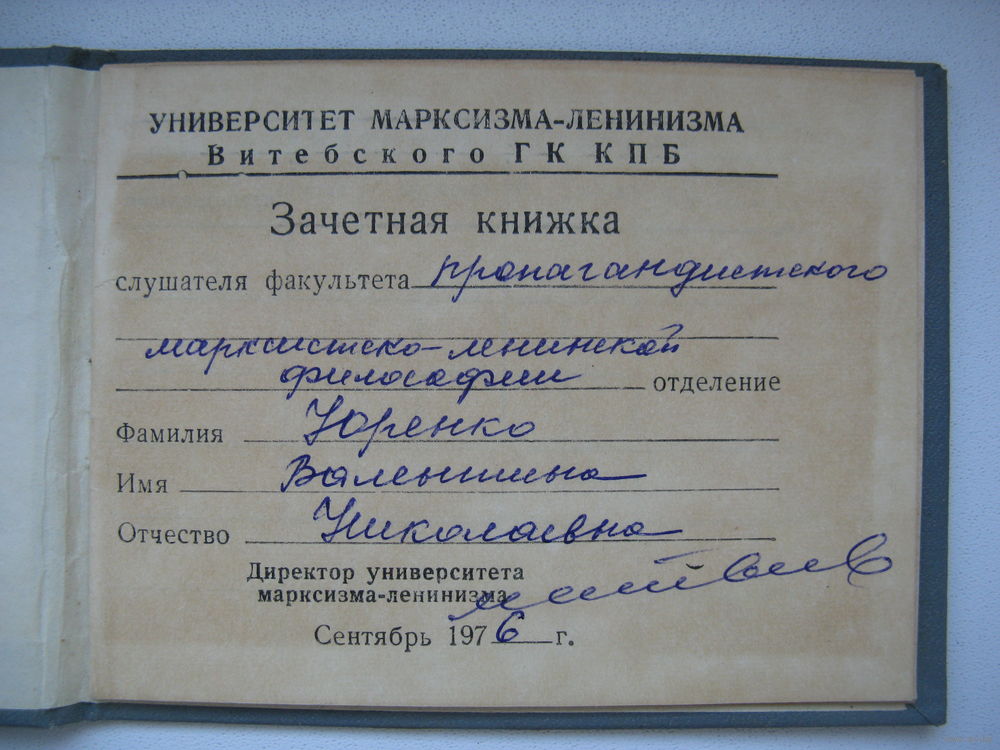 УНИВЕРСИТЕТ МАРКСИЗМА-ЛЕНИНИЗМА
Витебского ГК КПБ
Зачетная книжка
слушателя факультета пропагандистского
марксистско-ленинской
философии отделение
Фамилия Юренко
Имя Валентина
Отчество Николаевна
Директор университета
марксизма-ленинизма
Сентябрь 1976 г.